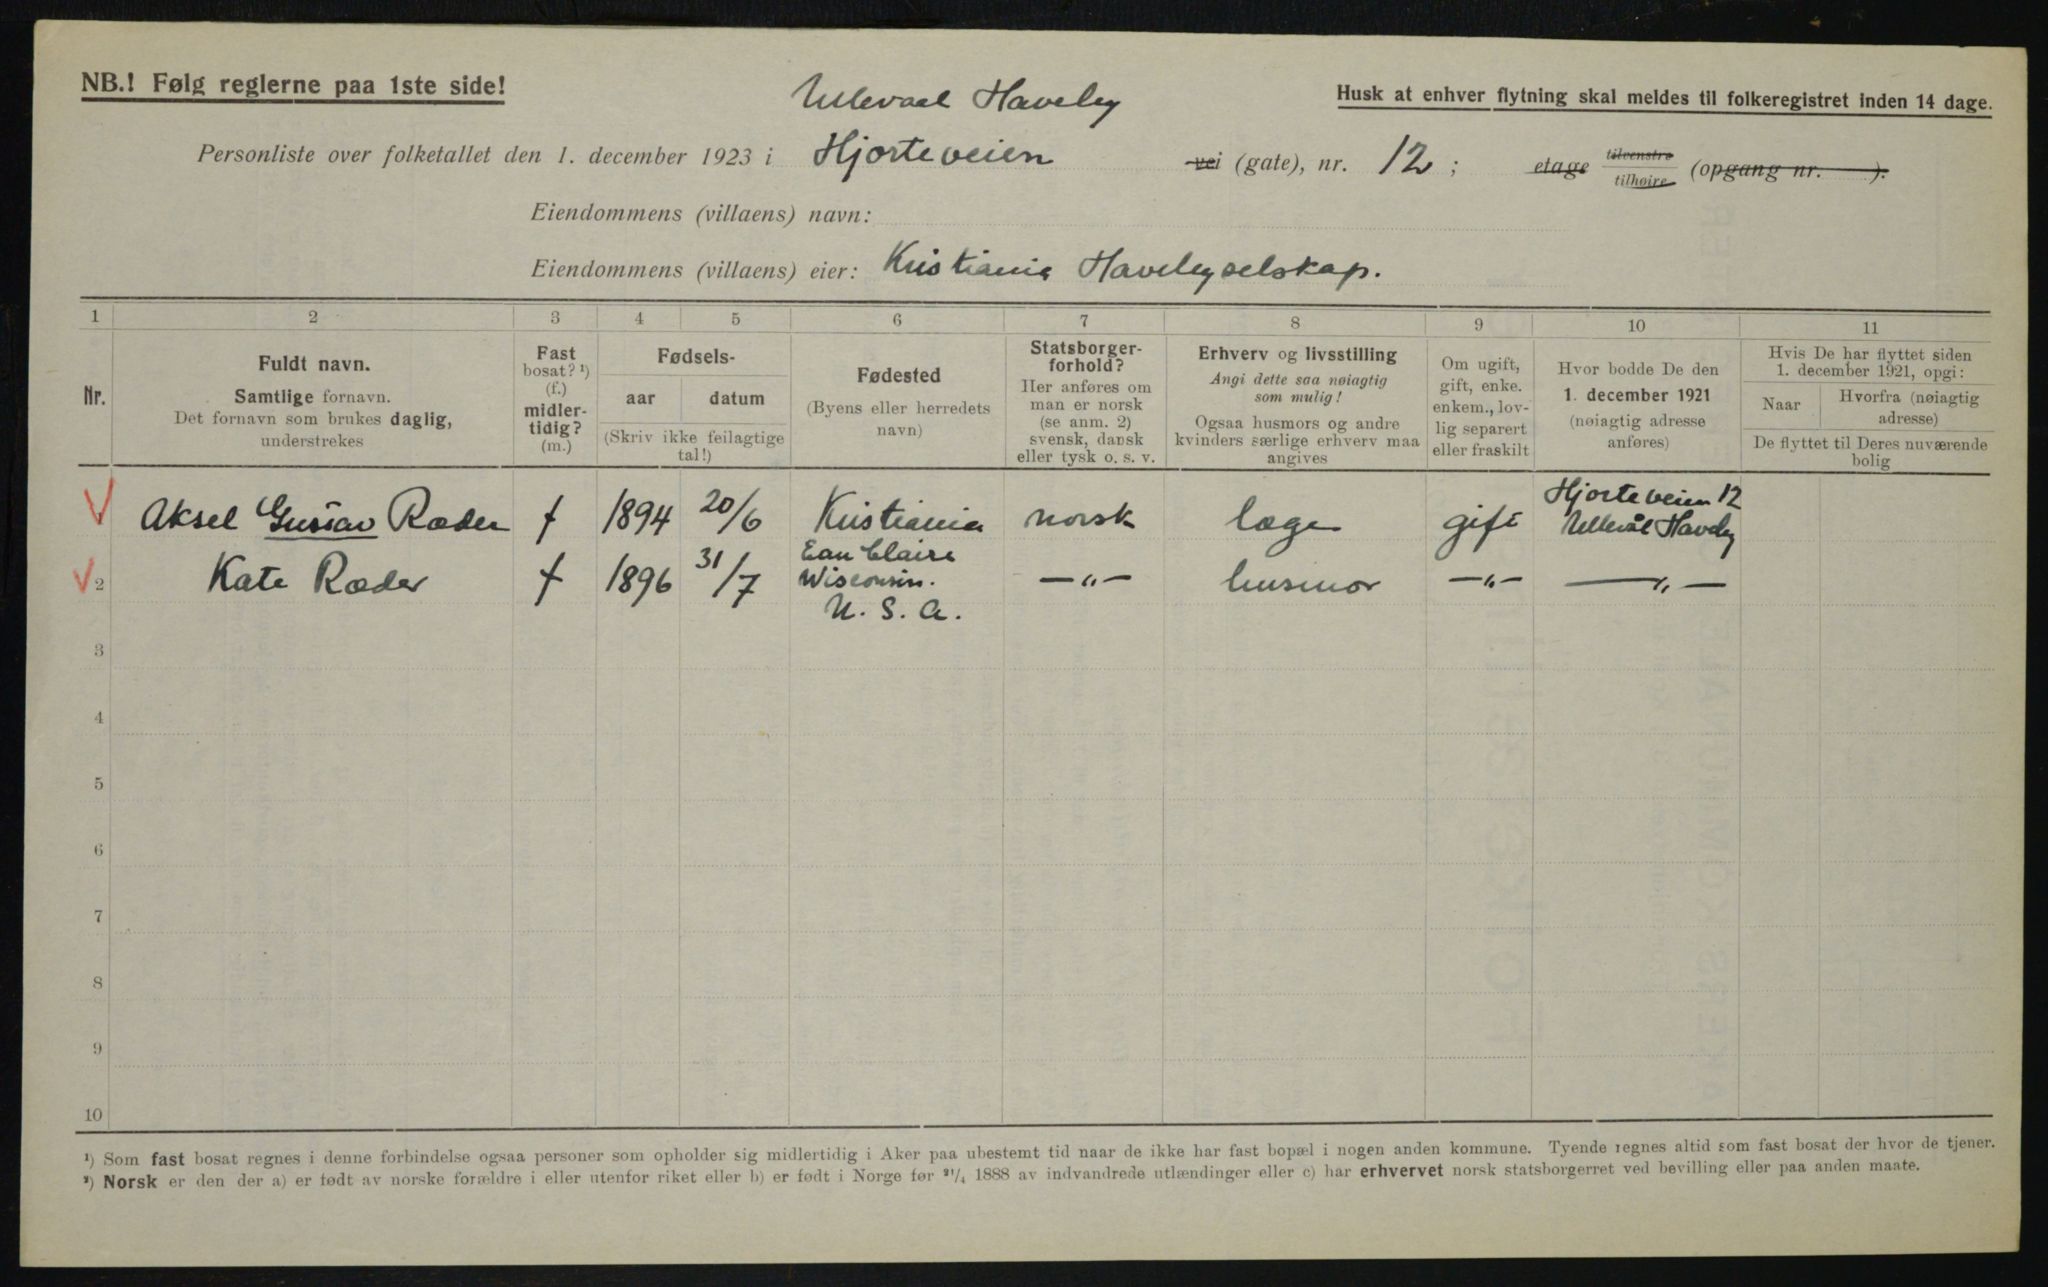 NB.! Følg reglerne paa 1ste side!
Husk at enhver flytning skal meldes til folkeregistret inden 14 dage.
Ullevaal Haveby
Personliste over folketallet den 1. december 1923 i Hjorteveien vei (gate), nr. 12; etage tilvenstre tilhøire (opgang nr. ).
Eiendommens (villaens) navn:
Eiendommens (villaens) eier: Kristiania Havebyselskap.
1 2 3 4 5 6 7 8 9 10 11
Nr.
Fuldt navn.
Samtlige fornavn.
Det fornavn som brukes daglig,
understrekes
Fast
bosat? ¹)
(f.)
midler-
tidig?
(m.)
Fødsels-
aar datum
(Skriv ikke feilagtige
tal!)
Fødested
(Byens eller herredets
navn)
Statsborger-
forhold?
Her anføres om
man er norsk
(se anm. 2)
svensk, dansk
eller tysk o. s. v.
Erhverv og livsstilling
Angi dette saa nøiagtig
som mulig!
Ogsaa husmors og andre
kvinders særlige erhverv maa
angives
Om ugift,
gift, enke.
enkem., lov-
lig separert
eller fraskilt
Hvor bodde De den
1. december 1921
(nøiagtig adresse
anføres)
Hvis De har flyttet siden
1. december 1921, opgi:
Naar
Hvorfra (nøiagtig
adresse)
De flyttet til Deres nuværende
bolig
Aksel Gustav Ræder f 1894 20/6 Kristiania norsk læge gift Hjorteveien 12
Ullevål Haveby
2 Kate Ræder f 1896 31/7 Eau Claire
Wisconsin.
U. S. A. —"— husmor —"— —"—
3
4
5
6
7
8
9
10
¹) Som fast bosat regnes i denne forbindelse ogsaa personer som opholder sig midlertidig i Aker paa ubestemt tid naar de ikke har fast bopæl i nogen anden kommune. Tyende regnes altid som fast bosat der hvor de tjener.
²) Norsk er den der a) er født av norske forældre i eller utenfor riket eller b) er født i Norge før ²¹/₄ 1888 av indvandrede utlændinger eller c) har erhvervet norsk statsborgerret ved bevilling eller paa anden maate.